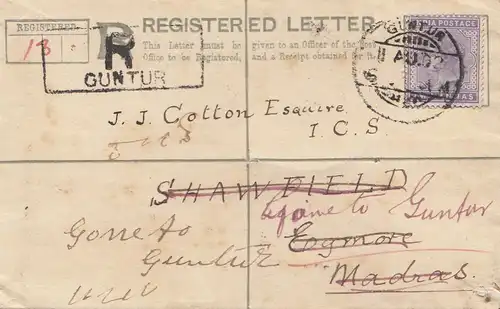 REGISTERED LETTER.
REGISTERED
13
R
GUNTUR
This Letter must be given to an Officer of the Post
Office to be Registered, and a Receipt obtained for it.
GUNTUR
11 AU 02
INDIA POSTAGE
J. J. Cotton Esquire,
I. C. S.
SHAWFIELD
gone to Guntur
Gone to
Guntur
Egmore
Madras.